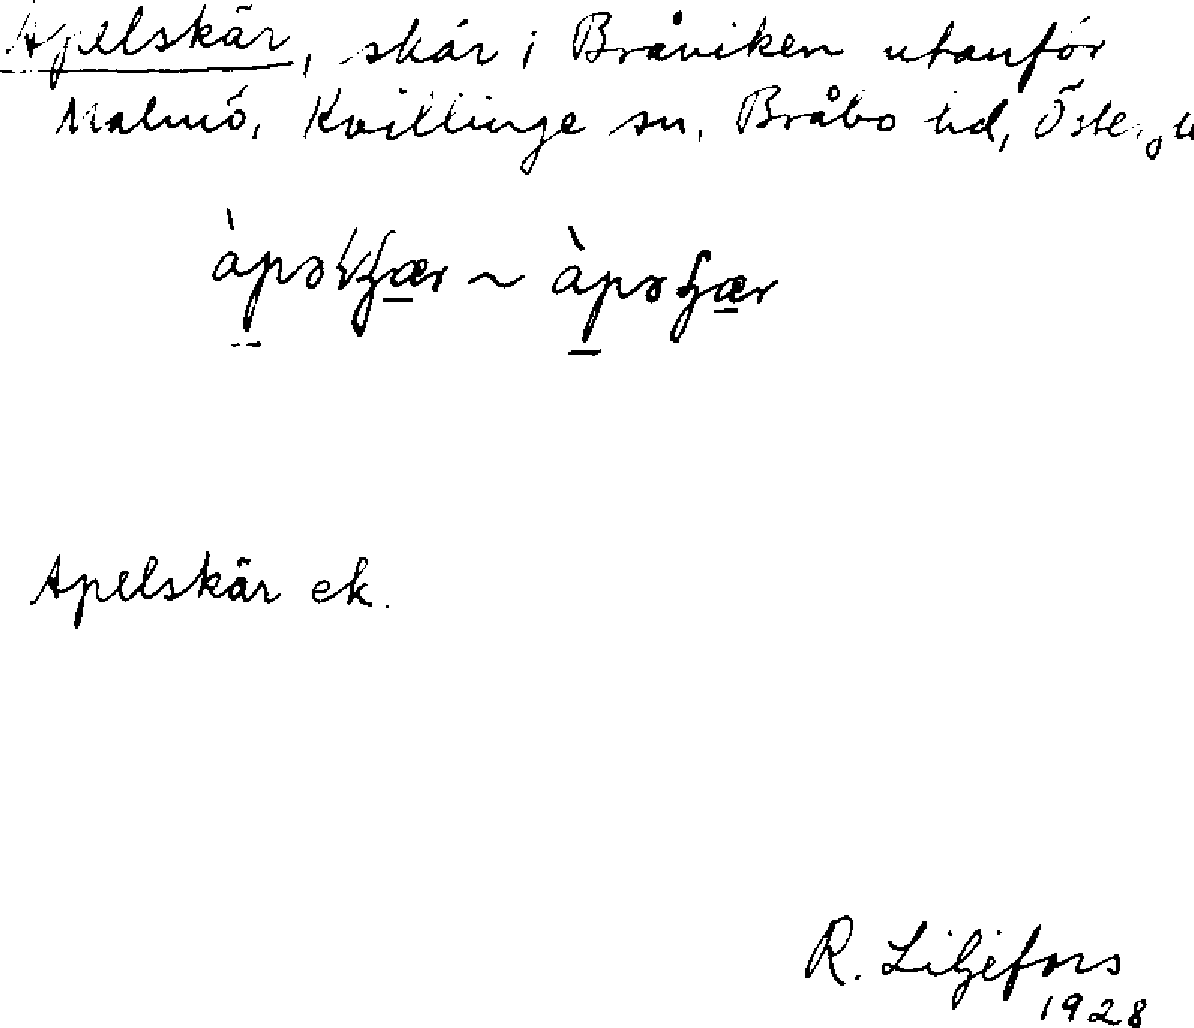 Apelskär, skär i Bråviken utanför
Malmö, Kvillinge sn, Bråbo hd,
Apelskär ek.
R. Liljefors
1928